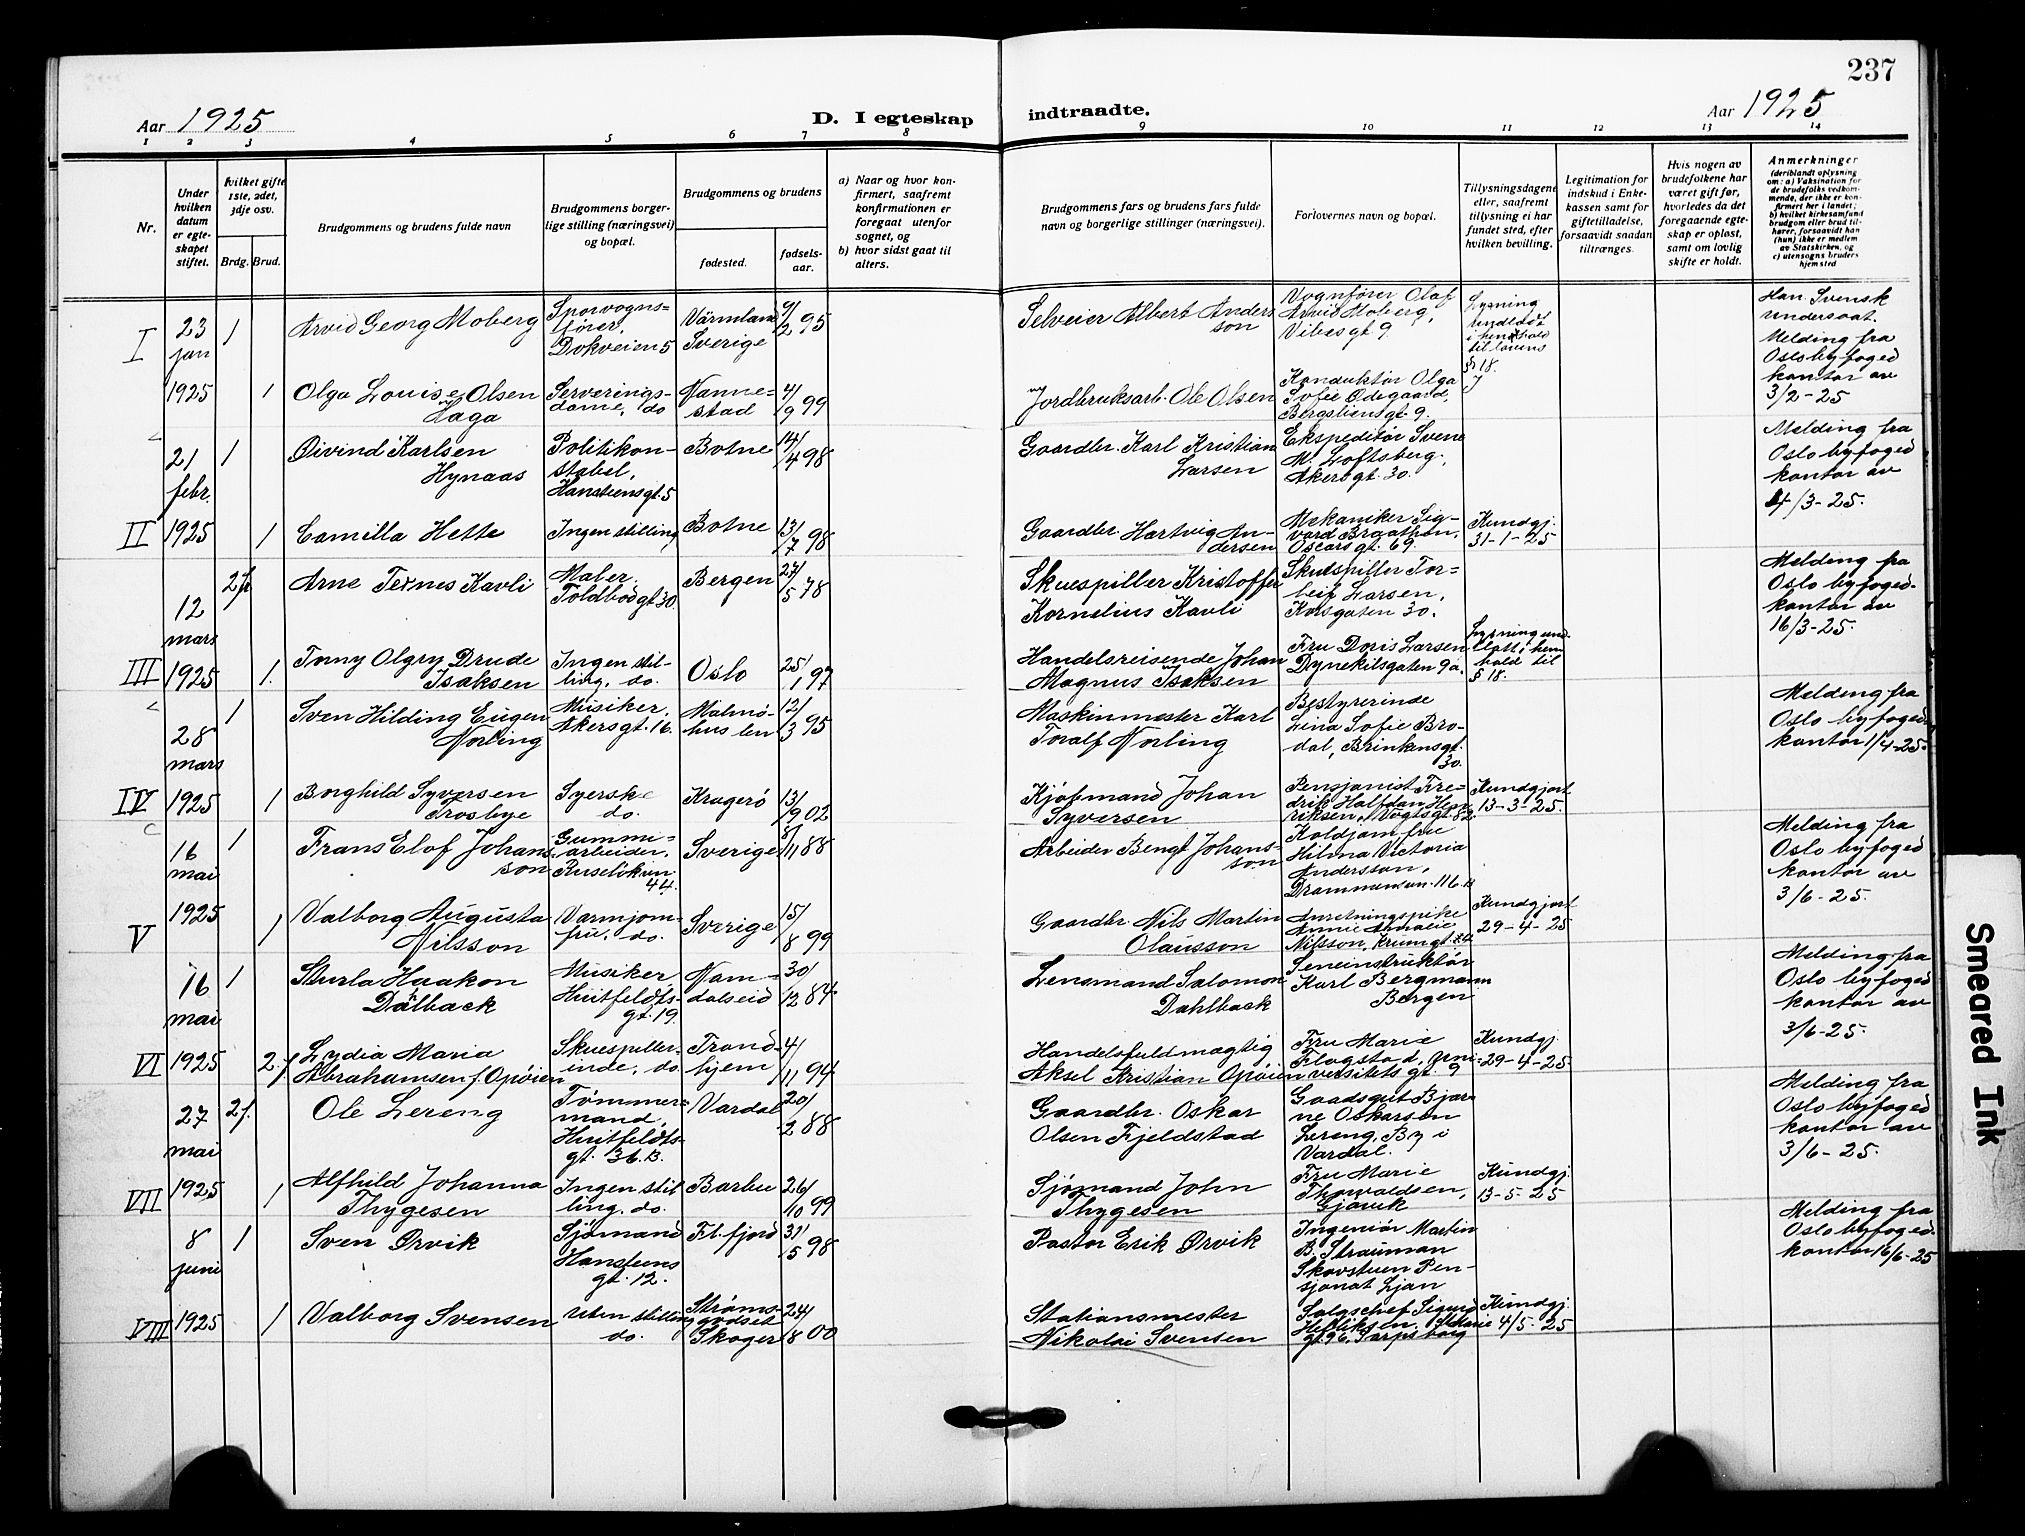 237
Aar 1925
D. I egteskap
indtraadte.
Aar 1925
1 2 3 4 5 6 7 8 9 10 11 12 13 14
Nr.
Under hvilken datum er egteskapet stiftet.
hvilket gifte 1ste, 2det, 3dje osv.
Brdg. Brud.
Brudgommens og brudens fulde navn
Brudgommens borgerlige stilling (næringsvei) og bopæl.
Brudgommens og brudens
fødested.
fødselsaar.
a) Naar og hvor konfirmert, saafremt konfirmationen er foregaat utenfor sognet, og
b) hvor sidst gaat til alters.
Brudgommens fars og brudens fars fulde navn og borgerlige stillinger (næringsvei).
Forlovernes navn og bopæl.
Tillysningsdagene eller, saafremt tillysning ei har fundet sted, efter hvilken bevilling.
Legitimation for indskud i Enkekassen samt for giftetilladelse, forsaavidt saadan tiltrænges.
Hvis nogen av brudefolkene har været gift før, hvorledes da det foregaaende egteskap er opløst, samt om lovlig skifte er holdt.
Anmerkninger (deriblandt oplysning om: a) Vaksination for de brudefolks vedkommende, der ikke er konfirmert her i landet; b) hvilket kirkesamfund brudgom eller brud tilhører, forsaavidt han (hun) ikke er medlem av Statskirken, og c) utensogns bruders hjemsted
I
23 jan 1925
1
Arvid Georg Moberg
Sporvognsfører, Dokveien 5
Värmland Sverige
9/2 95
Selveier Albert Andersson
Vognfører Olaf Arvid Moberg, Vibesgt 9.
Lysning undlatt i henhold til lovens § 18.
Han Svensk undersaat.
Melding fra Oslo byfoged kontor av 3/2-25
1
Olga Louise Olsen Laga
Serveringsdame, do
Nannestad
4/9 99
Jordbruksarb. Ole Olsen
Konduktør Olga Sofie Ødegaard, Bergsliensgt. 9.
II
21 febr. 1925
1
Øivind Karlsen Hynaas
Politikonstabel, Hansteensgt. 5
Botne
14/4 98
Gaardbr. Karl Kristian Larsen
Ekspeditør Svend M. Loftsberg, Akersgt. 30.
Melding fra Oslo byfoged kontor av 4/3-25.
1
Camilla Hette
Ingen stilling
Botne
13/7 98
Gaardbr. Hartvig Andersen
Mekaniker Sigvard Braathen, Oscarsgt. 69.
Kundgj. 31-1-25
III
12 mars 1925
2/
Arne Texnes Kavli
Maler. Toldbodgt 30.
Bergen
27/5 78
Skuespiller Kristoffer Kornelius Kavli
Skuespiller Torleif Larsen, Korsgaten 30.
Melding fra Oslo byfogedkontor av 16/3-25.
1.
Tomy Olgry Drude Isaksen
Ingen stilling, do.
Oslo
25/1 97
Handelsreisende Johan Magnus Isaksen
Fru Doris Larsen Dynekilsgaten 9a.
Lysning undlatt i henhold til § 18.
IV
28 mars 1925
1
Sven Hilding Eugen Norling
Musiker, Akersgt. 16.
Malmöhus len
12/3 95
Maskinmester Karl Toralf Norling
Bestyrerinde Lina Sofie Brodal, Brinkensgt. 30.
Melding fra Oslo byfoged kontor 1/4-25.
1
Borghild Syversen Trosbye
Syerske do.
Kragerø
13/9 02
Kjøbmand Johan Syversen
Pensjonist Fredrik Halfdan Henriksen, Vogtsgt. 82.
Kundgjort 13-3-25.
V
16 mai 1925
1
Frans Elof Johansson
Gummiarbeider, Ruseløkvn 44.
Sverige
8/11 88
Arbeider Bengt Johansson
Koldjomfru Hilma Victoria Andersson, Drammensvn. 116 B
Melding fra Oslo byfoged kontor av 3/6-25.
1
Valborg Augusta Nilsson
Varmjomfru, do.
Sverige
15/8 99
Gaardbr. Nils Martin Olausson
Anretningspike Annie Amalie Nilsson, Krumgt.
Kundgjort 29-4-25
VI
16 mai 1925
1
Sturla Haakon Dålback
Musiker, Huitfeldtsgt. 19.
Namdalseid
30/12 84.
Lensmand Salomon Dahlback
Seneinstruktør Karl Bergmann Bergen
Melding fra Oslo byfoged kontor av 3/6-25.
2.f
Lydia Maria Abrahamsen f. Opøien
Skuespillerinde, do
Trondhjem
4/11 94
Handelsfuldmægtig Aksel Kristian Opøien
Fru Marie Flagstad, Universitetsgt. 9
Kundgj. 29-4-25.
VII
27 mai 1925
2/.
Ole Lereng
Tømmermand, Huitfeldtsgt. 36.B.
Vardal
20/2 88
Gaardbr. Oskar Olsen Fjeldstad
Gaadsgut Bjarne Oskarsen Lereng, By i Vardal.
Melding fra Oslo byfoged kontor av 3/6-25.
1
Alfhild Johanna Thygesen
Ingen stilling, do.
Barbu
26/10 99
Sjømand John Thygesen
Fru Marie Thorvaldsen, Gjøvik
Kundgj. 13-5-25
VIII
8 juni 1925
1
Sven Ørvik
Sjømand Hansteensgt. 12.
Fl.fjord
31/5 98
Pastor Erik Ørvik
Ingeniør Martin B. Strauman Skovstuen Pensjonat Ljan
Melding fra Oslo byfogedkontor 16/6-25
1
Valborg Svensen
uten stilling do.
Strømsgodset Skoger
24/8 00
Stationsmester Nikolai Svensen
Salgschef Sigurd Helliksen, St Mariegt. 96, Sarpsborg
Kundgj. 4/5-25
Smeared Ink